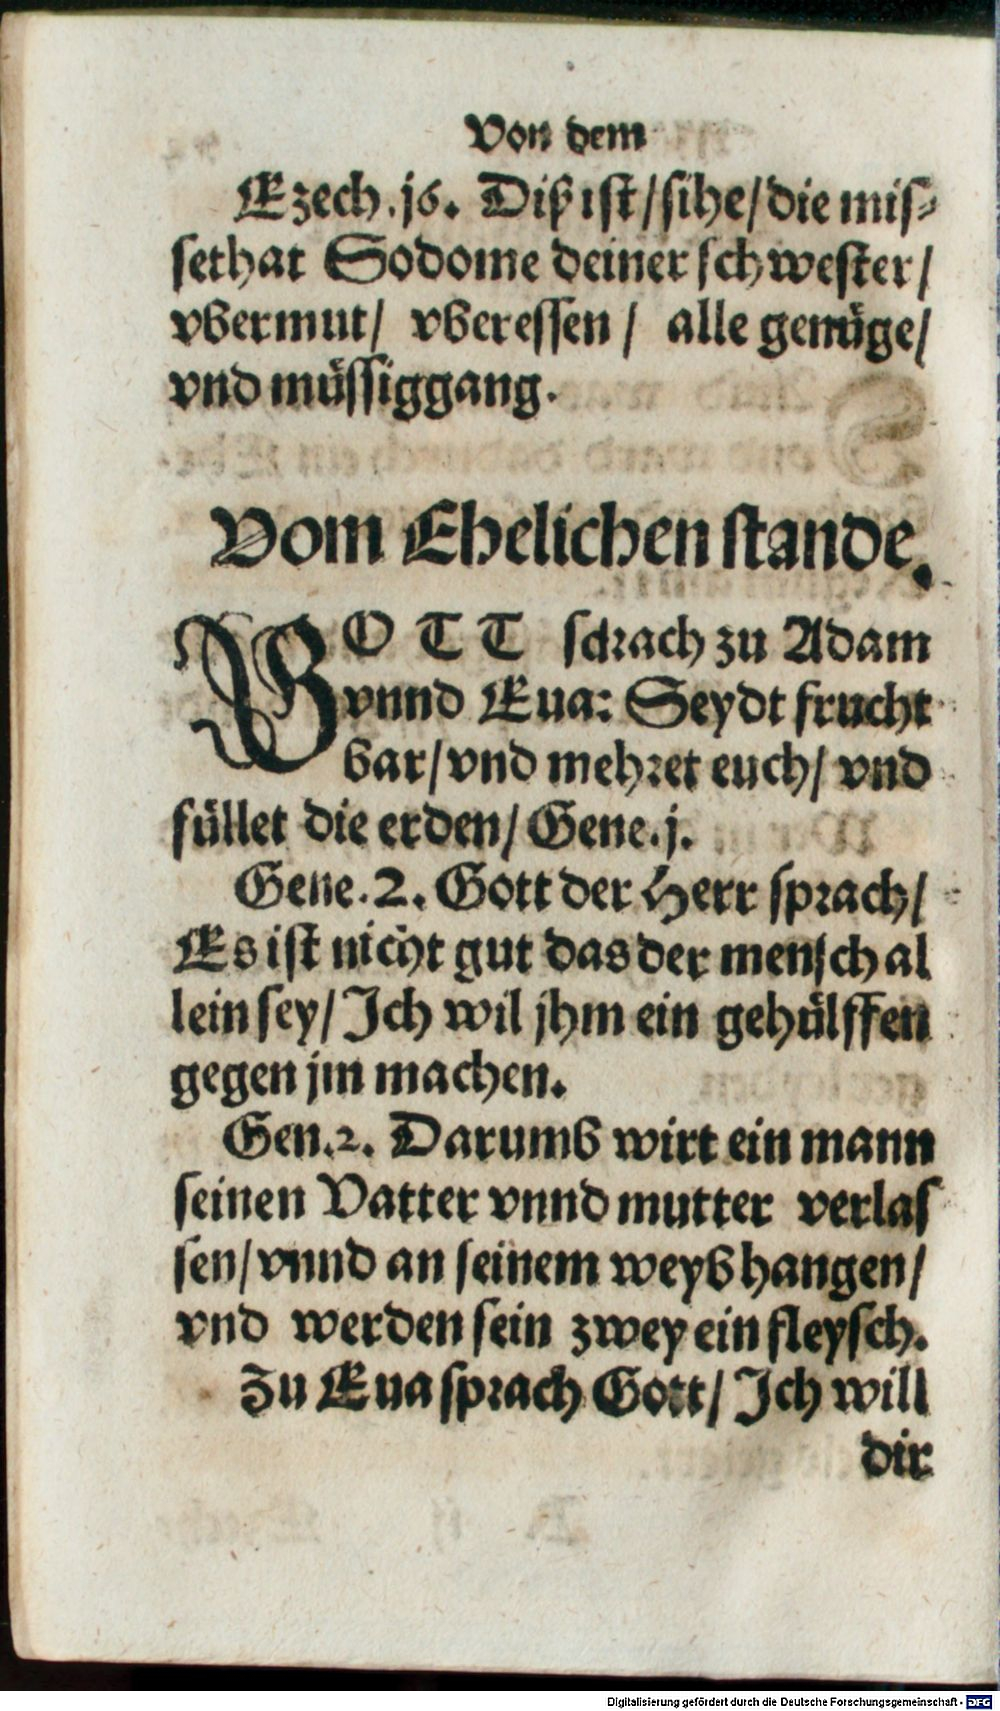 Von dem
Ezech. j6. Diß ist/ sihe/ die mis⸗
sethat Sodome deiner schwester/
vbermut/ vberessen/ alle genüge/
vnd müssiggang.
Vom Ehelichen stande.
GOTT sprach zu Adam
vnnd Eua: Seydt frucht
bar/ vnd mehret euch/ vnd
füllet die erden/ Gene. j.
Gene. 2. Gott der Herr sprach/
Es ist nicht gut das der mensch al
lein sey/ Ich wil jhm ein gehülffen
gegen jm machen.
Gen. 2. Darumb wirt ein mann
seinen Vatter vnnd mutter verlas
sen/ vnnd an seinem weyb hangen/
vnd werden sein zwey ein fleysch.
Zu Eua sprach Gott/ Ich will
dir
Digitalisierung gefördert durch die Deutsche Forschungsgemeinschaft - DFG